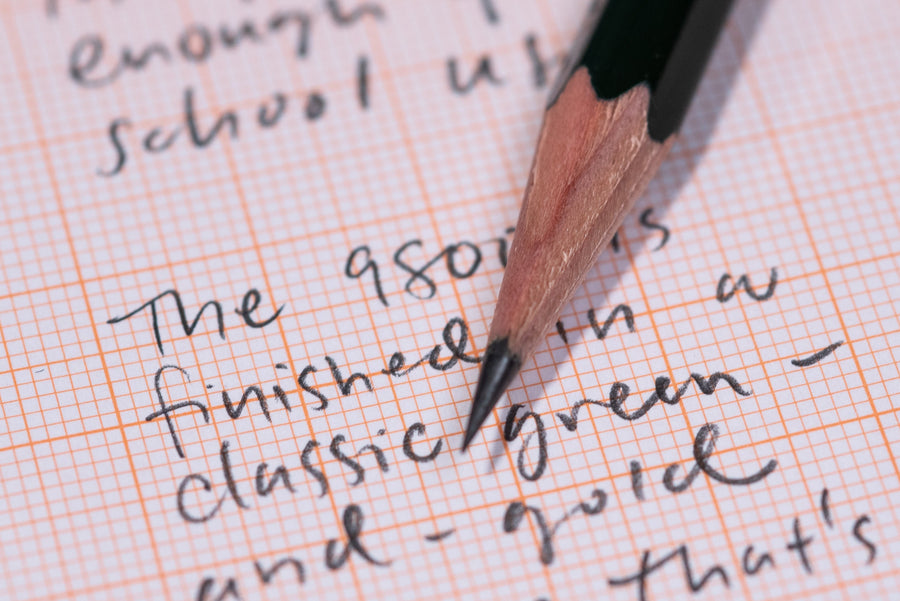 enough
school
The 980 is
finished in a
classic green -
and - gold
that's